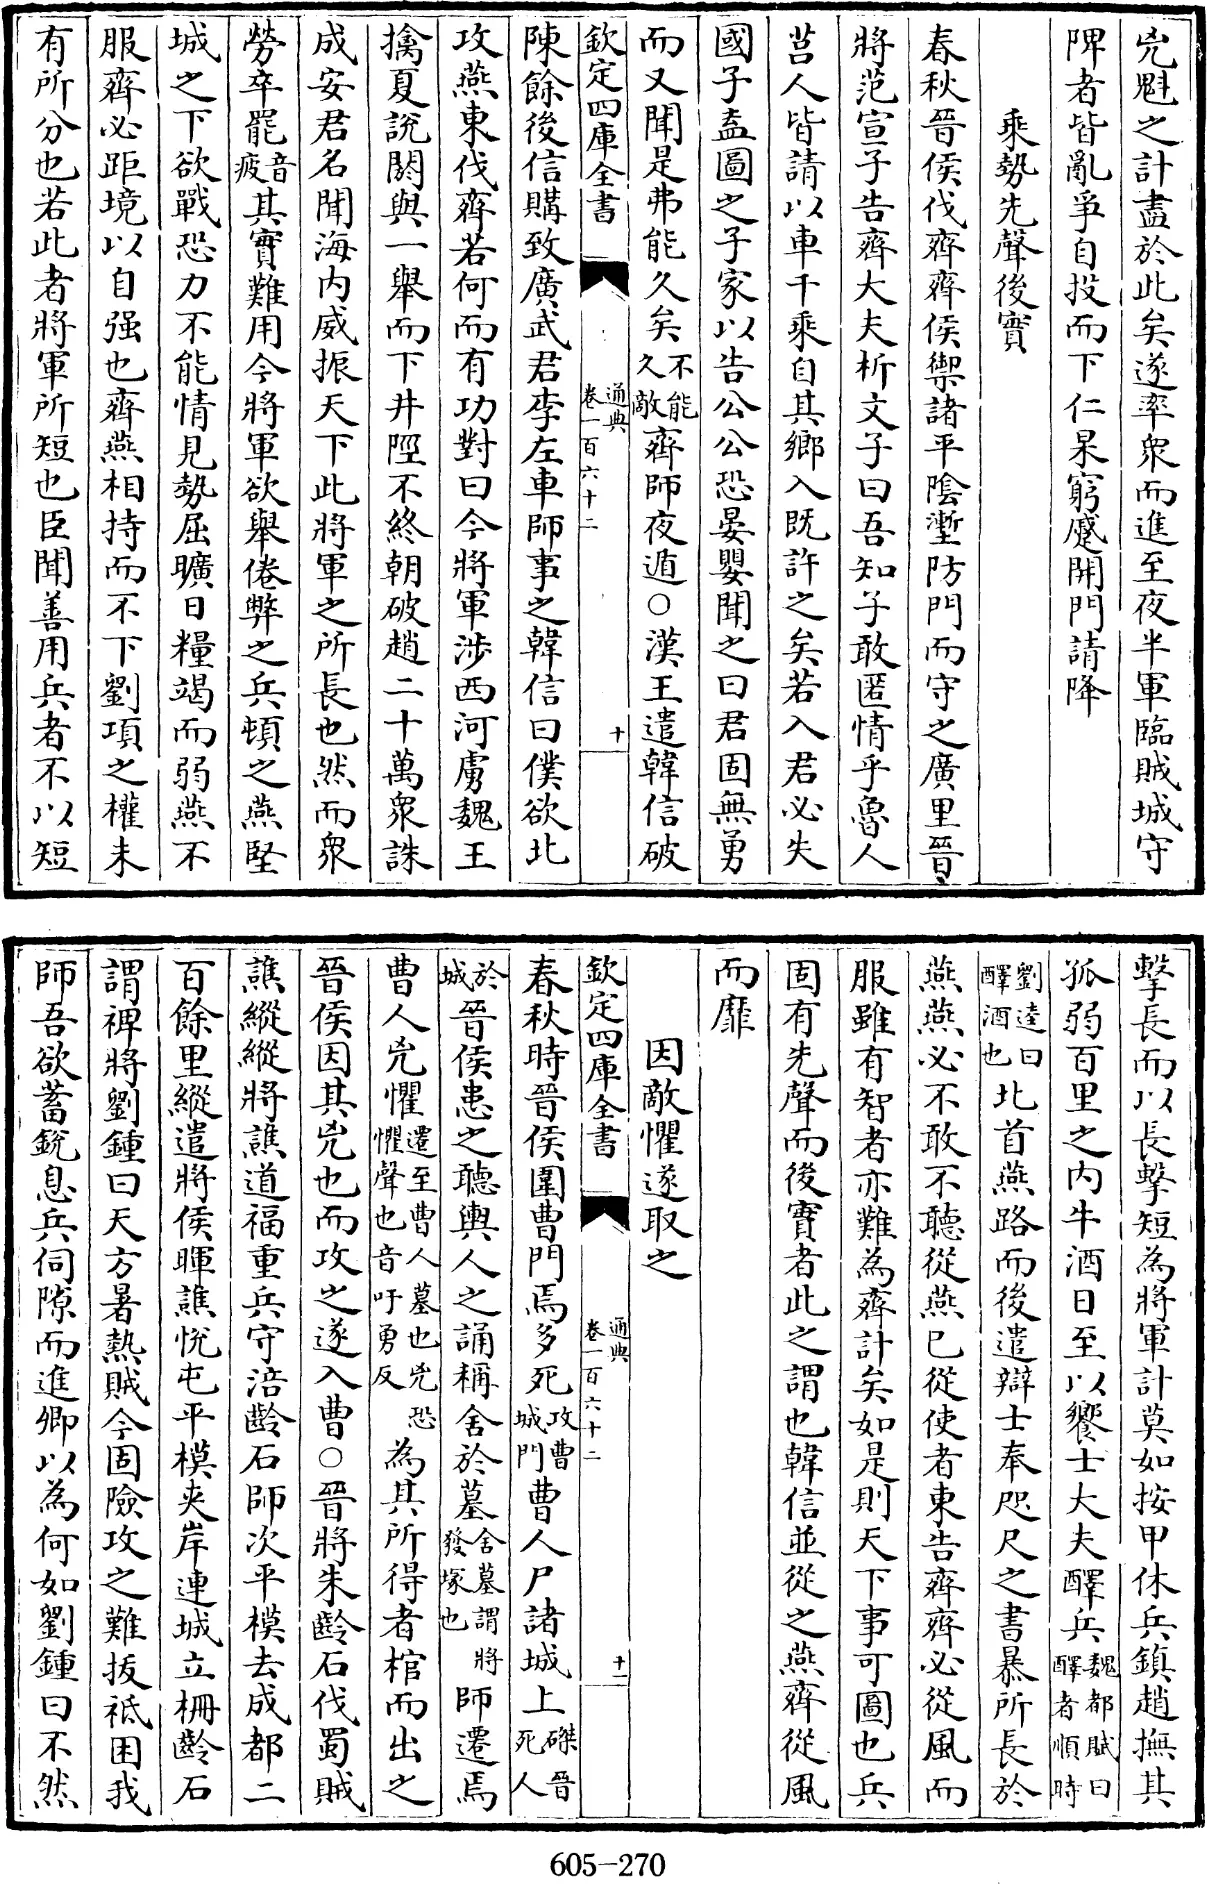 兇魁之計盡於此矣遂率衆而進至夜半軍臨賊城守
陴者皆亂爭自投而下仁杲窮蹙開門請降
乘勢先聲後實
春秋晉侯伐齊齊侯禦諸平陰塹防門而守之廣里晉
將范宣子告齊大夫析文子曰吾知子敢匿情乎魯人
莒人皆請以車千乘自其鄉入既許之矣若入君必失
國子盍圖之子家以告公公恐晏嬰聞之曰君固無勇
而又聞是弗能久矣不能久敵齊師夜遁○漢王遣韓信破
欽定四庫全書 通典卷一百六十二 十
陳餘後信購致廣武君李左車師事之韓信曰僕欲北
攻燕東伐齊若何而有功對曰今將軍涉西河虜魏王
擒夏說閼與一舉而下井陘不終朝破趙二十萬衆誅
成安君名聞海內威振天下此將軍之所長也然而衆
勞卒罷音疲其實難用今將軍欲舉倦弊之兵頓之燕堅
城之下欲戰恐力不能情見勢屈曠日糧竭而弱燕不
服齊必距境以自强也齊燕相持而不下劉項之權未
有所分也若此者將軍所短也臣聞善用兵者不以短
擊長而以長擊短為將軍計莫如按甲休兵鎮趙撫其
孤弱百里之內牛酒日至以饗士大夫醳兵魏都賦曰醳者順時
劉逵曰醳酒也北首燕路而後遣辯士奉咫尺之書暴所長於
燕燕必不敢不聽從燕已從使者東告齊齊必從風而
服雖有智者亦難為齊計矣如是則天下事可圖也兵
固有先聲而後實者此之謂也韓信並從之燕齊從風
而靡
因敵懼遂取之
欽定四庫全書 通典卷一百六十二 十一
春秋時晉侯圍曹門焉多死攻曹城門曹人尸諸城上磔晉死人
於城晉侯患之聽輿人之誦稱舍於墓舍墓謂將發塚也師遷焉
曹人兇懼遷至曹人墓也兇恐懼聲也音吁勇反為其所得者棺而出之
晉侯因其兇也而攻之遂入曹○晉將朱齡石伐蜀賊
譙縱縱將譙道福重兵守涪齡石師次平模去成都二
百餘里縱遣將侯暉譙悅屯平模夾岸連城立柵齡石
謂裨將劉鍾曰天方暑熱賊今固險攻之難拔祗困我
師吾欲蓄銳息兵伺隙而進卿以為何如劉鍾曰不然
605-270